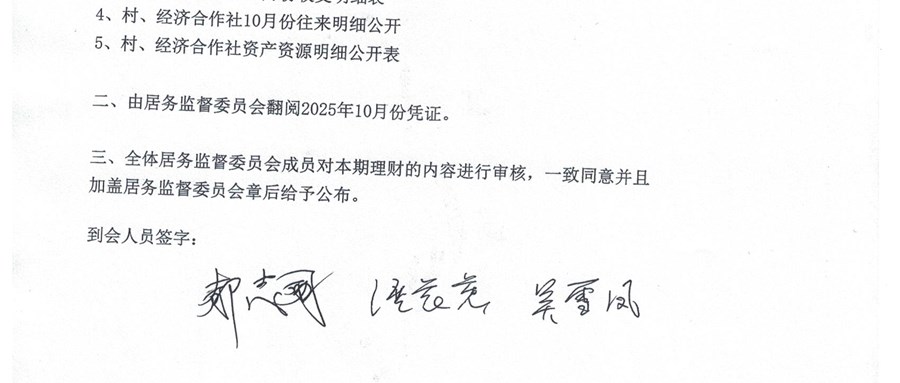 4、村、经济合作社10月份往来明细公开
5、村、经济合作社资产资源明细公开表
二、由居务监督委员会翻阅2025年10月份凭证。
三、全体居务监督委员会成员对本期理财的内容进行审核，一致同意并且
加盖居务监督委员会章后给予公布。
到会人员签字：
郑志国 吴雪凤